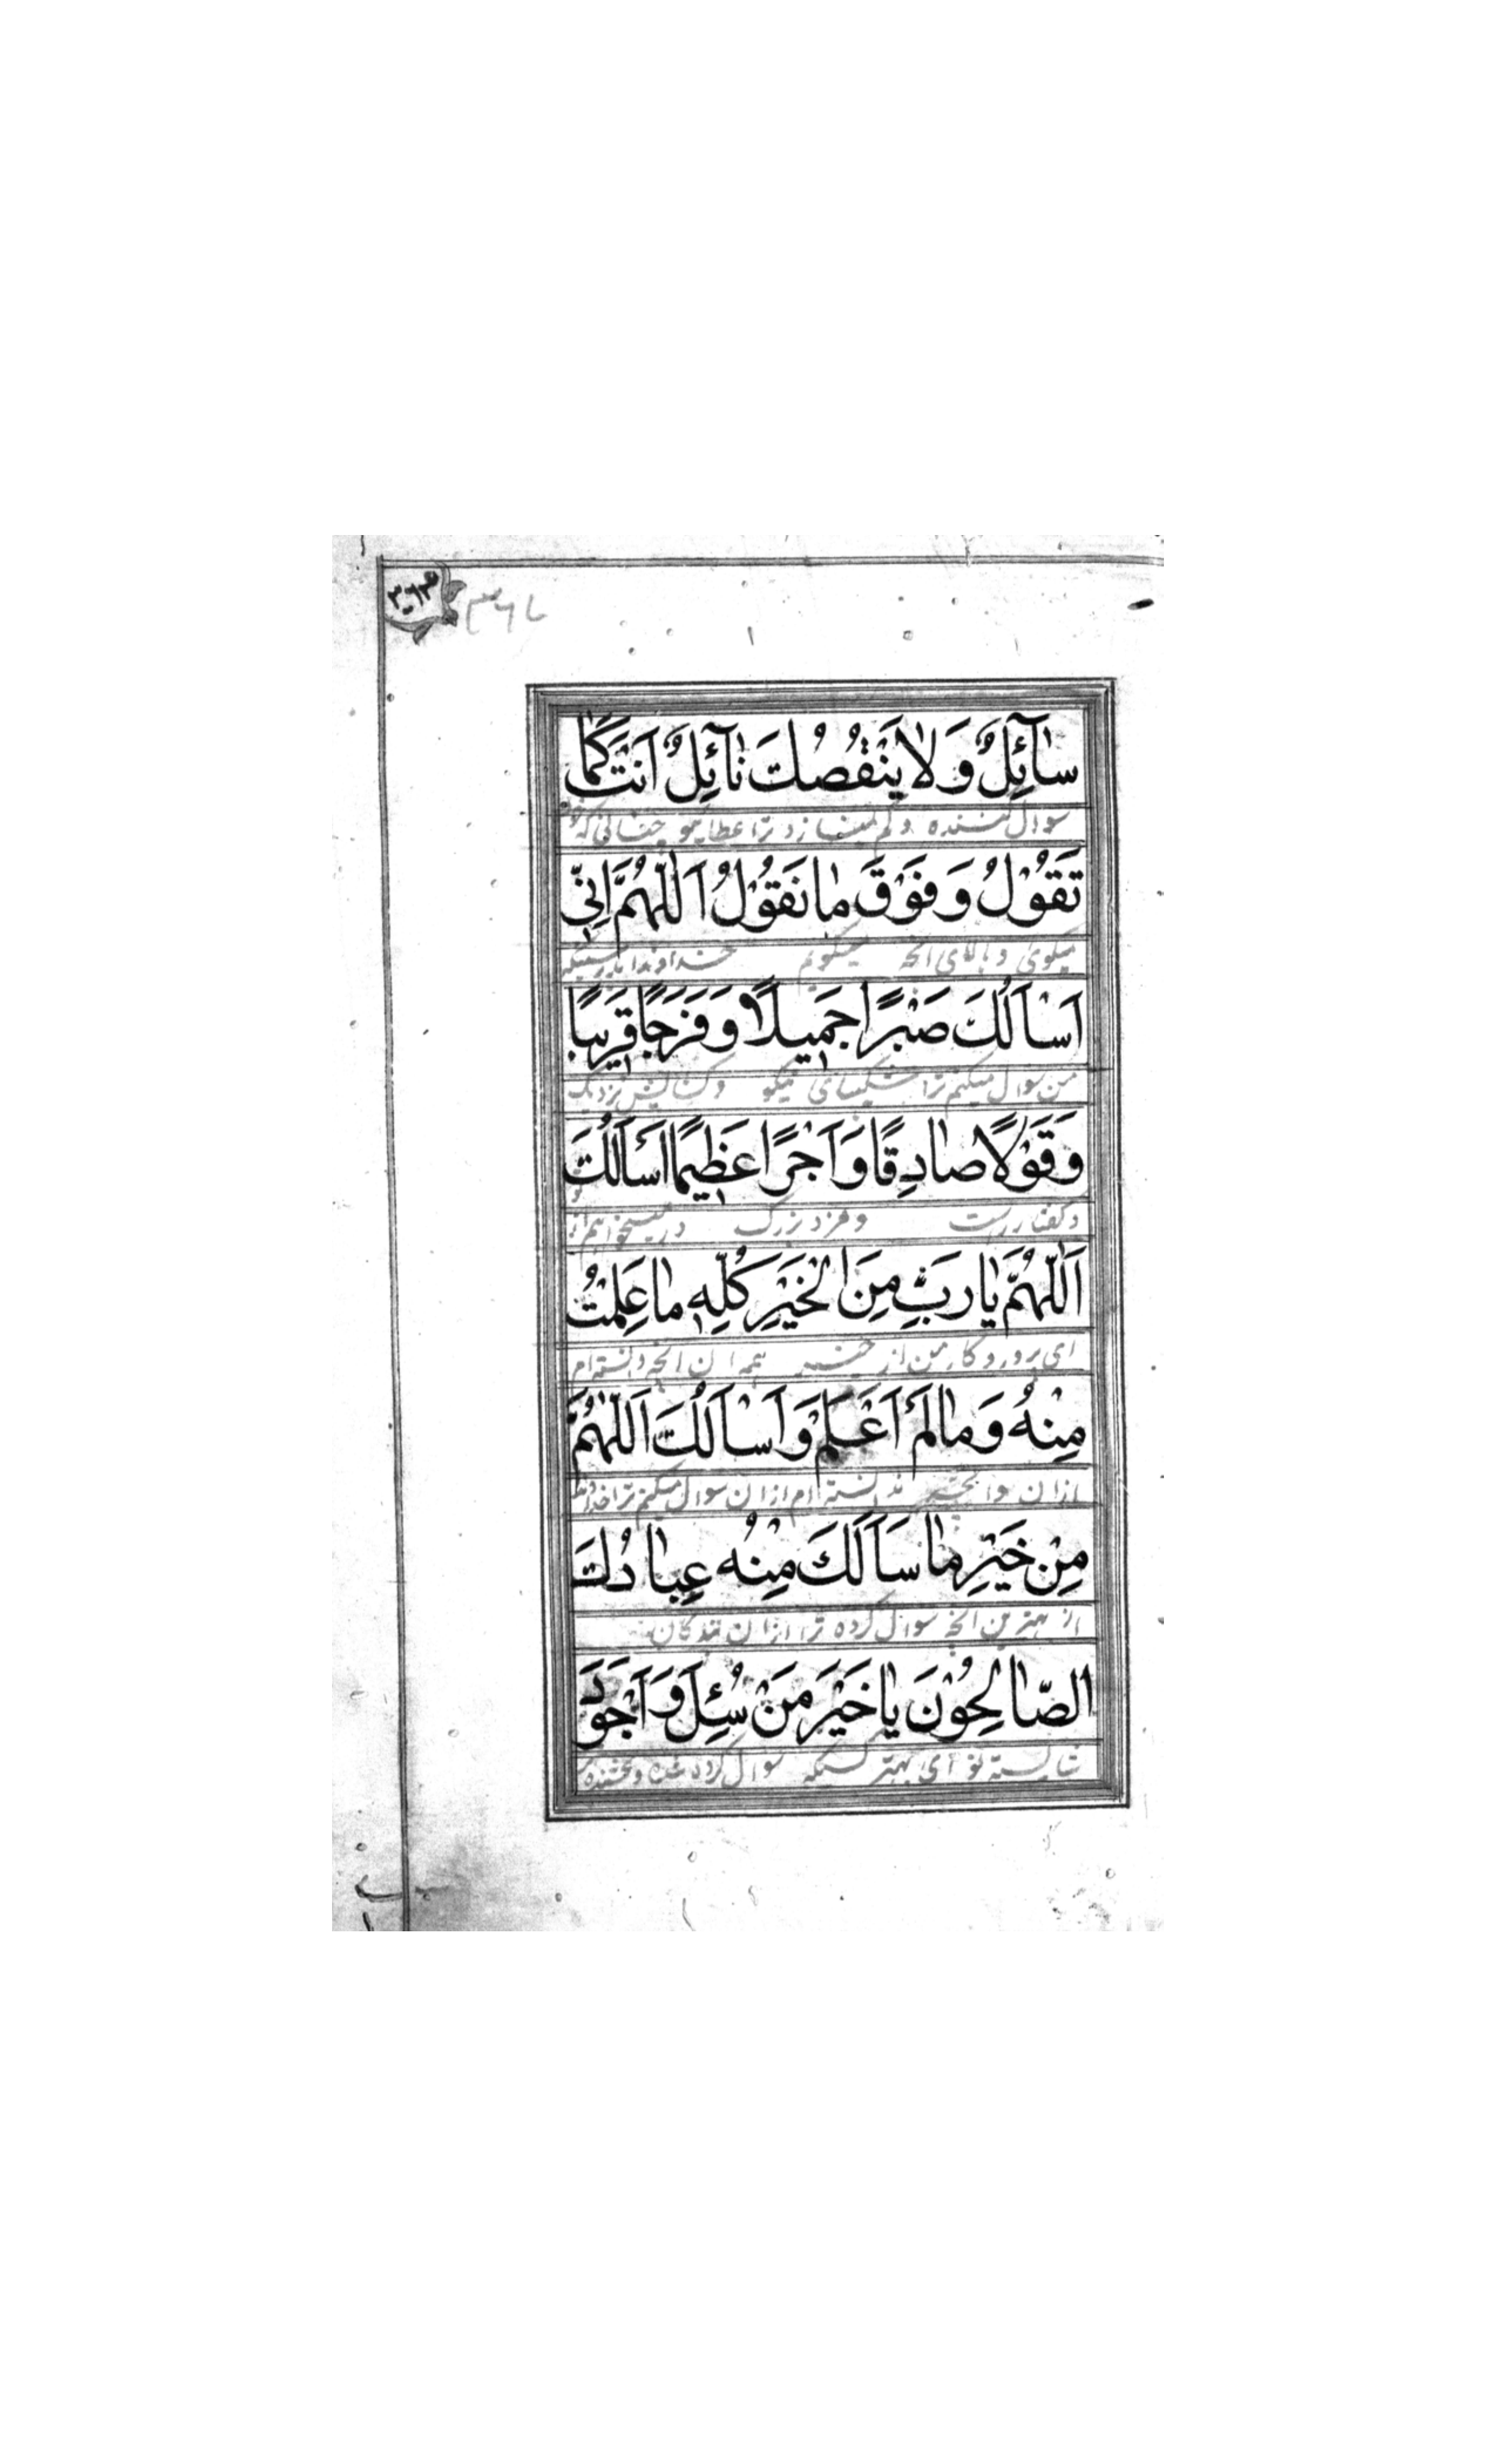 ۳۶۳
سٰآئِلٌ وَلٰا يَنْقُصُكَ نٰآئِلٌ اَنْتَ كَمٰا
سوال کننده و کم نمیسازد ترا عطا همچو چنانی که
تَقُوْلُ وَفَوْقَ مٰا نَقُوْلُ اَللّٰهُمَّ اِنّى
میکوی و بالای انچه میکویم خداوندا بدرستیکه
اَسْاَلُكَ صَبْرًا جَمِيلًا وَفَرَجًا قَرِيبًا
من سوال میکنم ترا شکیبای نیکو و کشایش نزدیک
وَقَوْلًا صٰادِقًا وَاَجْرًا عَظِيمًا اَسْاَلُكَ
و کفتار راست و مزد بزرک در میخواهم از
اَللّٰهُمَّ يٰا رَبِّ مِنَ الْخَيْرِ كُلِّهِ مٰا عَلِمْتُ
ای پروردکار من از خیر همه ان انچه دانسته ام
مِنْهُ وَمٰا لَمْ اَعْلَمْ وَاَسْاَلُكَ اَللّٰهُمَّ
ازان و انچه ندانسته ام ازان سوال میکنم ترا خداوندا
مِنْ خَيْرِ مٰا سَاَلَكَ مِنْهُ عِبٰادُكَ
از بهترین انچه سوال کرده ترا ازان بندکان
الصّٰالِحُوْنَ يٰا خَيْرَ مَنْ سُئِلَ وَاَجْوَدَ
شایسته تو ای بهتر کسیکه سوال کرده شده و بخشنده